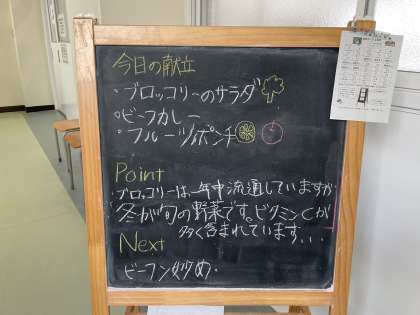 今日の献立
・ブロッコリーのサラダ
・ビーフカレー
・フルーツポンチ
Point
ブロッコリーは、一年中流通していますが
冬が旬の野菜です。ビタミンCが
多く含まれています...
Next
ビーフン炒め・